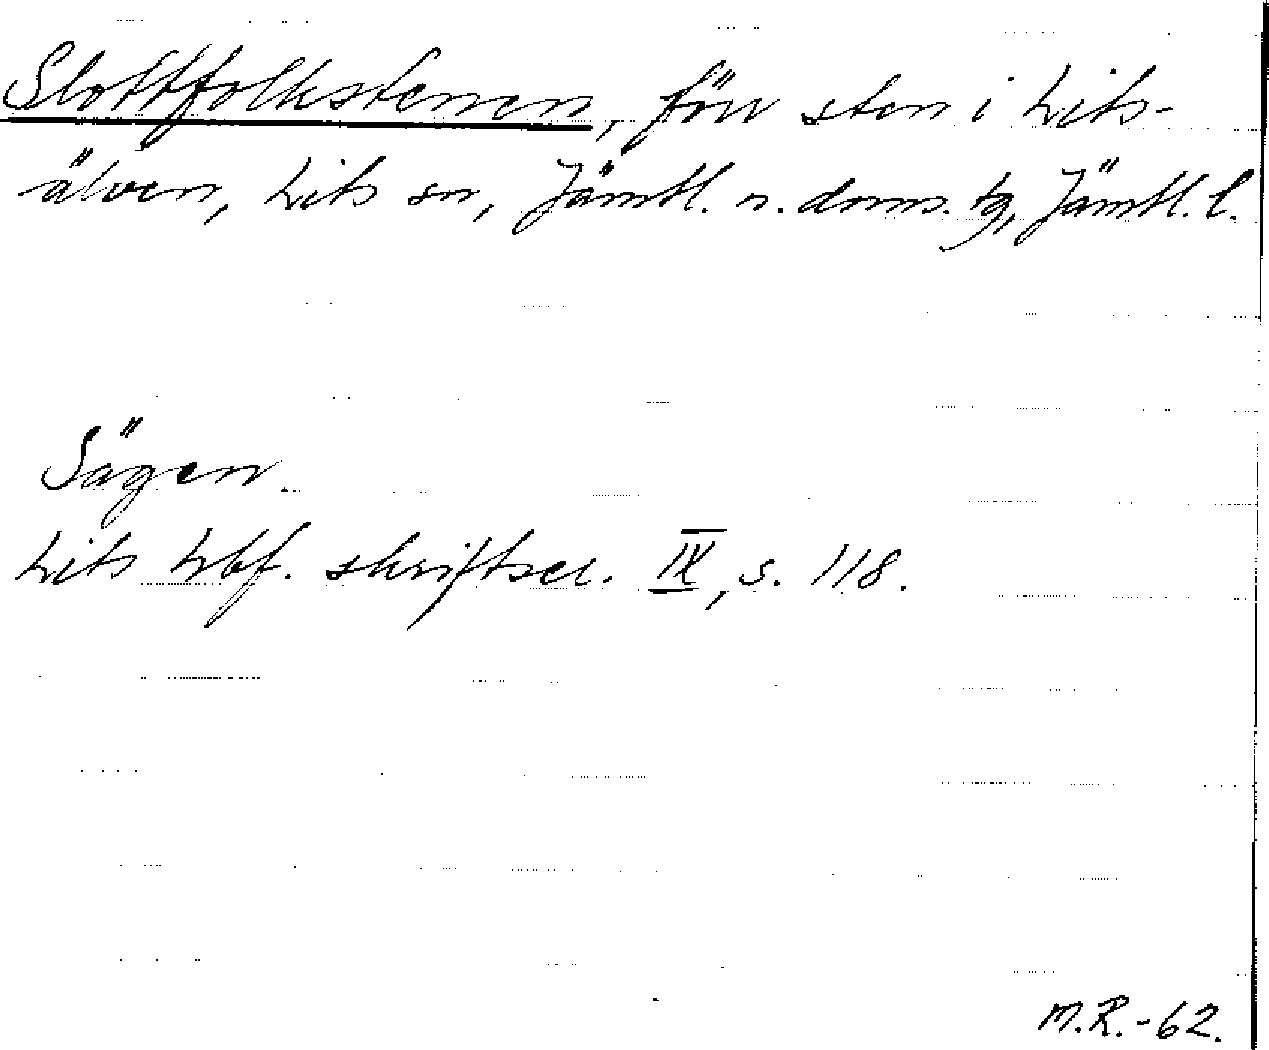 Slottfolkstenen, förr sten i Lits-
älven, Lits sn, Jämtl. n. doms. tg, Jämtl. l.
Sägen.
Lits hbf. skriftser. IX, s. 118.
M.R.-62.